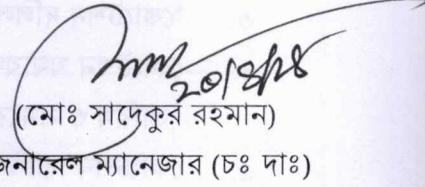 ২০/৪/২৪
(মোঃ সাদেকুর রহমান)
জনারেল ম্যানেজার (চঃ দাঃ)